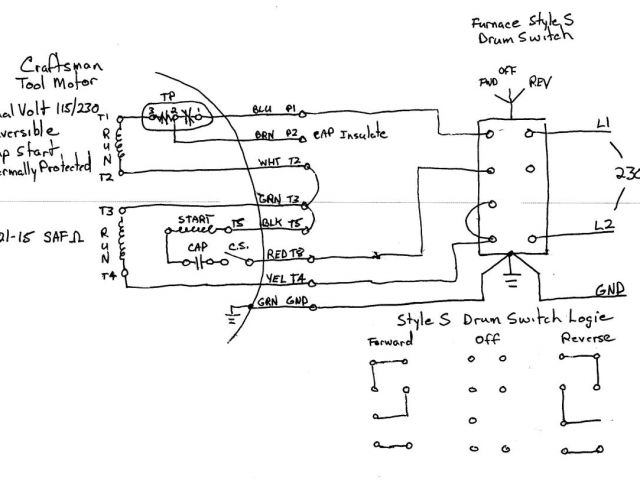 Furnace Style S
Drum Switch
Craftsman
Tool Motor
OFF
FWD
REV
TP
Volt 115/230
T1
3
2
1
BLU P1
L1
R
U
N
BRN P2
CAP Insulate
Start
Protected
WHT T2
T2
230
GRN T3
T3
START
T5
BLK T5
L2
21-15 SAF Ω
R
U
N
CAP
C.S.
RED T8
T4
YEL T4
GRN GND
GND
Style S Drum Switch Logic
Forward
OFF
Reverse